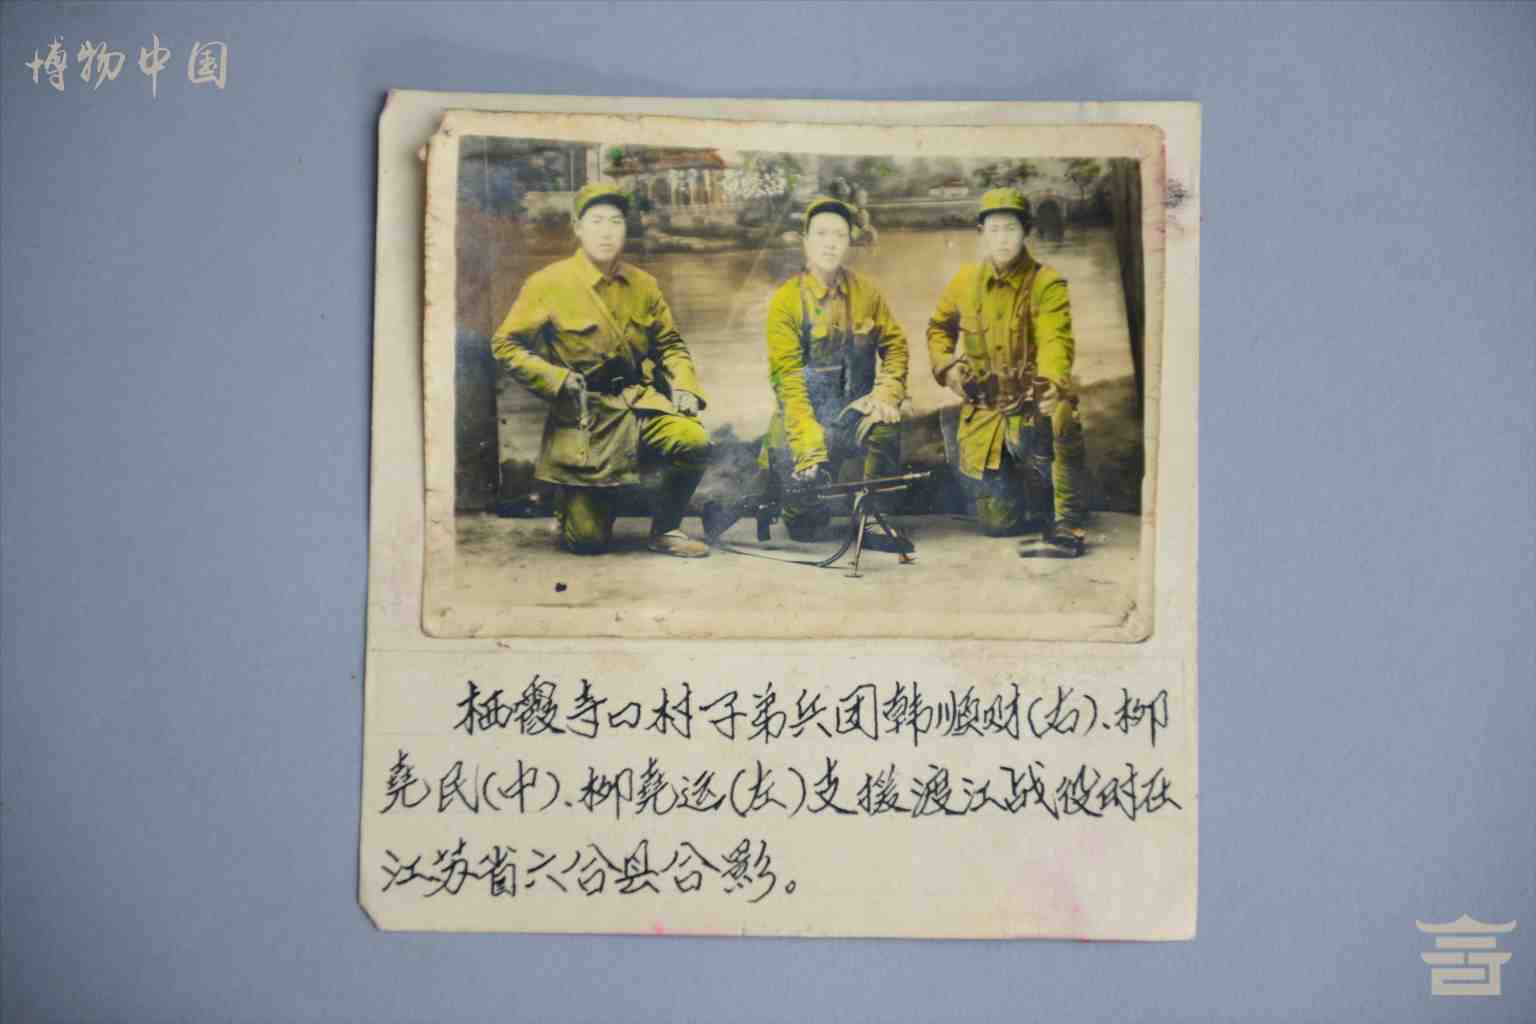 博物中国
栖霞寺口村子弟兵团韩顺财(右)、柳
尧民(中)、柳尧运(左)支援渡江战役时在
江苏省六合县合影。